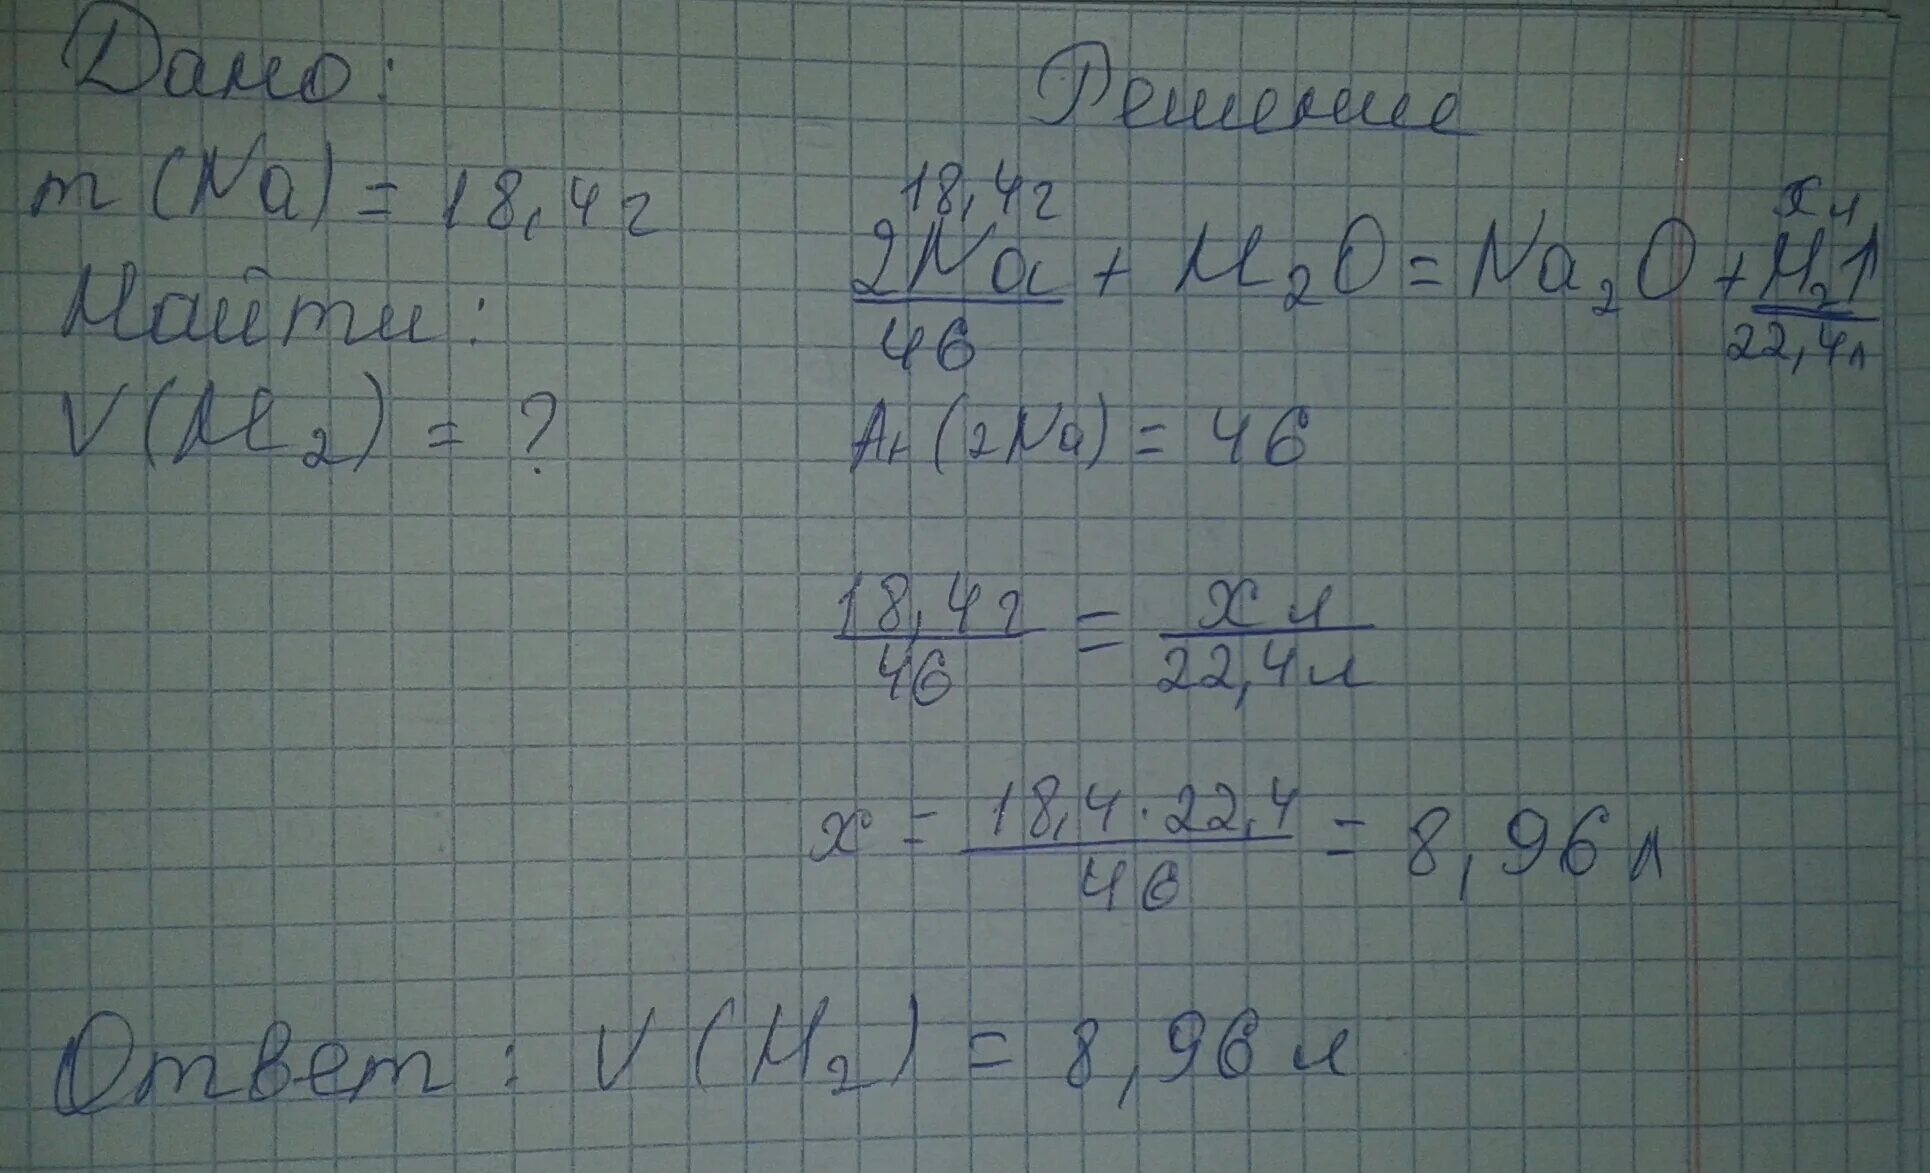 Дано:
m (Na) = 18,4 г
Найти:
V (H₂) = ?
Решение
18,4 г x л
2Na + H₂O = Na₂O + H₂↑
46 22,4 л
Ar (2Na) = 46
18,4 г / 46 = x л / 22,4 л
x = 18,4 · 22,4 / 46 = 8,96 л
Ответ : V (H₂) = 8,96 л